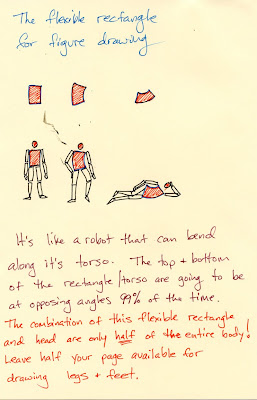 The flexible rectangle
for figure drawing
It's like a robot that can bend
along it's torso. The top + bottom
of the rectangle/torso are going to be
at opposing angles 99% of the time.
The combination of this flexible rectangle
and head are only half of the entire body!
Leave half your page available for
drawing legs + feet.